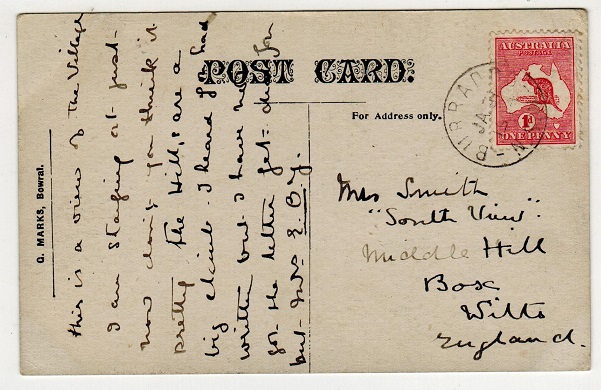 POST CARD.
For Address only.
G. MARKS, Bowral.
this is a view of the Village
I am staying at just
now don't you think it
pretty the Hills are a
big climb I heard you had
written but I have not
got the letter yet = due for
but Mrs E. By.
AUSTRALIA
POSTAGE
1D
ONE PENNY
BURRAD
JA
N
Mrs Smith
"South View".
Middle Hill
Box
Wilts
England.